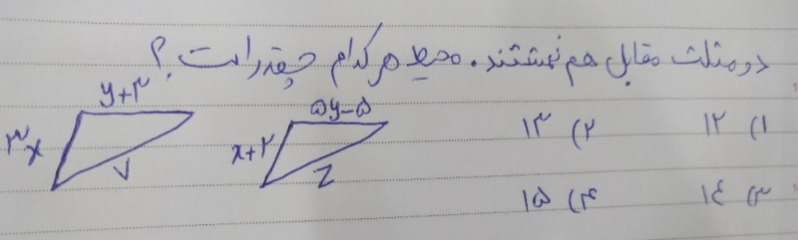 دو مثلث مقابل هم نهشتند. محیط هر کدام چقدر است؟
y+3
5y-5
3x
x+2
7
Z
۱) ۱۲
۲) ۱۳
۳) ۱۴
۴) ۱۵